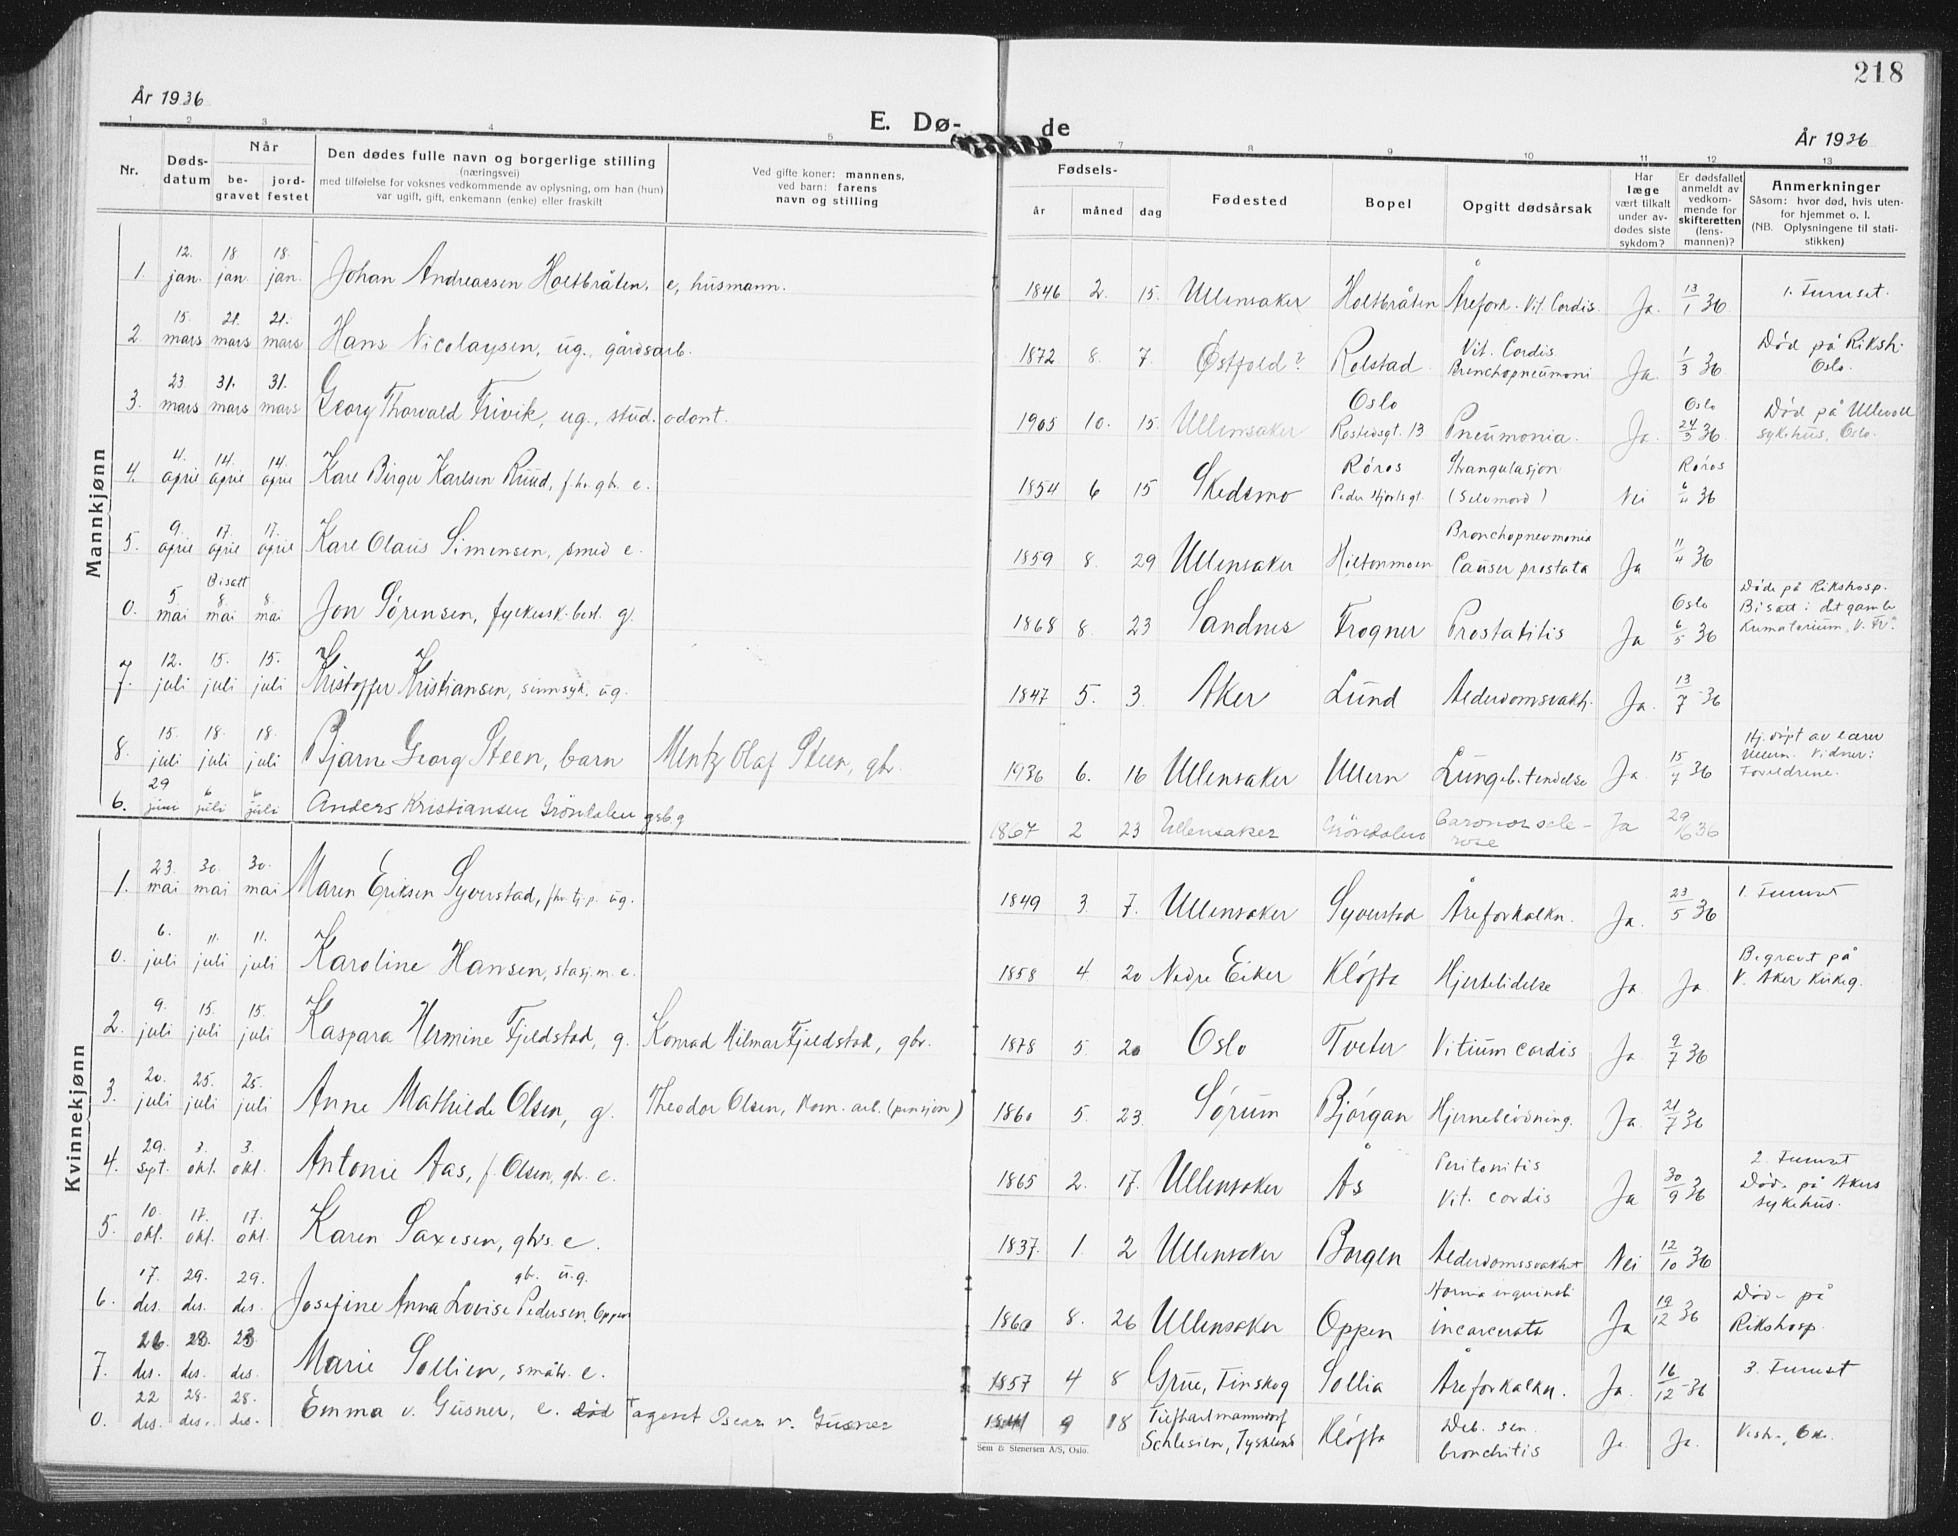 218
År 1936
E. Dø-de
År 1936
1 2 3 4 5 7 8 9 10 11 12 13
Nr.
Døds-
datum
Når
be-
gravet
jord-
festet
Den dødes fulle navn og borgerlige stilling
(næringsvei)
med tilføielse for voksnes vedkommende av oplysning, om han (hun)
var ugift, gift, enkemann (enke) eller fraskilt
Ved gifte koner: mannens,
ved barn: farens
navn og stilling
Fødsels-
år måned dag
Fødested
Bopel
Opgitt dødsårsak
Har
læge
vært tilkalt
under av-
dødes siste
sykdom?
Er dødsfallet
anmeldt av
vedkom-
mende for
skifteretten
(lens-
mannen)?
Anmerkninger
Såsom: hvor død, hvis uten-
for hjemmet o. l.
(NB. Oplysningene til stati-
stikken)
Mannkjønn
1. 12. jan. 18. jan. 18. jan. Johan Andreassen Holtbråten, e, husmann. 1846 2. 15. Ullensaker Holtbråten Årefork. Vit. Cordis. Ja. 13/1 36 1. Furuset.
2. 15. mars 21. mars 21. mars Hans Nicolaysen, ug., gårdsarb. 1872 8. 7. Østfold? Rolstad Vit. Cordis. Bronchopneumoni Ja. 1/3 36 Død på Riksh. Oslo.
3. 23. mars 31. mars 31. mars Georg Thorvald Frivik, ug., stud. odont. 1905 10. 15. Ullensaker Oslo Rostedsgt. 13 Pneumonia. Ja. Oslo 24/3 36 Død på Ullevoll sykehus, Oslo.
4. 4. april 14. april 14. april Kare Birger Karlsen Ruud, fhv. gbr. e. 1854 6 15 Skedsmo Røros Peder Hjortsgt. Strangulasjon (Selvmord) Nei Røros 6/4 36
5. 9. april 17. april 17. april Karl Olaus Simensen, smed e. 1859 8. 29 Ullensaker Hiltonmoen Bronchopneumonia Causer prostata Ja 11/4 36
0. 5 mai Bisatt 8. mai 8. mai Jon Sørensen, fylkessk.best. g. 1868 8. 23 Sandnes Frogner Prostatitis Ja Oslo 6/5 36 Døde på Rikshosp. Bisatt i det gamle Krematorium, "V. Fr."
7. 12. juli 15. juli 15. juli Kristoffer Kristiansen, sinnsyk, ug. 1847 5. 3. Aker Lund Alderdomssvakh. Ja. 13/7-36
8. 15. juli 18. juli 18. juli Bjarne Georg Steen, barn Mentz Olaf Steen, gbr. 1936 6. 16 Ullensaker Ullern Lungebetendelse Ja. 15/7 36 Hj.døpt av lærer Ullern. Vidner: Foreldrene.
6. 29 juni 6 juli 6 juli Anders Kristiansen Gröndalen gsb g 1867 2 23 Ullensaker Gröndalen Coronorscle-rose Ja 29/6 36
Kvinnekjønn
1. 23. mai 30. mai 30. mai Maren Eriksen Syverstad, fhv. tj.p. ug. 1849 3 7. Ullensaker Syverstad Åreforkalkn. Ja. 23/5 36 1. Furuset
0. 6. juli 11. juli 11. juli Karoline Hansen, stasj.m. e. 1858 4 20 Nedre Eiker Kløfta Hjertelidelse Ja Ja. Begravt på V. Aker kirkeg.
2. 9. juli 15. juli 15. juli Kaspara Hermine Fjeldstad, g. Konrad Hilmar Fjeldstad, gbr. 1878 5. 20 Oslo Tveter Vitium cordis Ja. 9/7 36
3. 20. juli 25. juli 25. juli Anne Mathilde Olsen, g. Theodor Olsen, kom. arb. (pensjon) 1860 5. 23. Sørum Bjørgan Hjerneblødning. Ja. 21/7 36
4. 29. sept. 3. okt. 3. okt. Antonie Aas, f. Olsen, gbr. e. 1865 2. 17. Ullensaker Ås Peritonitis Vit. cordis Ja 30/9 36 2. Furuset Død på Akers sykehus.
5. 10. okt. 17. okt. 17. okt. Karen Saxesen, gbrs. e. 1837. 1. 2 Ullensaker Borgen Alderdomssvakhet Nei 12/10 36
6. 17. des. 29. des. 29. des. Josefine Anna Lovise Pedersen, Oppen gb. ug. 1860 8. 26 Ullensaker Oppen incarcerata Ja 19/12 36 Død på Rikshosp.
7. 26. des. 23. des. 23 des. Marie Sollien, småbr. e. 1857 4 8 Grue, Finskog Sollia Åreforkalkn. Ja. 16/12-36 3. Furuset
0. 22 des. 28. des. 28. des. Emma v. Güsner, e. Oscar v. Güsner 9 18 Tiefhartmannsdorf Schlesien, Tyskland Kløfta Deb. sen. bronchitis Ja Ja.
Sem & Stenersen A/S, Oslo.